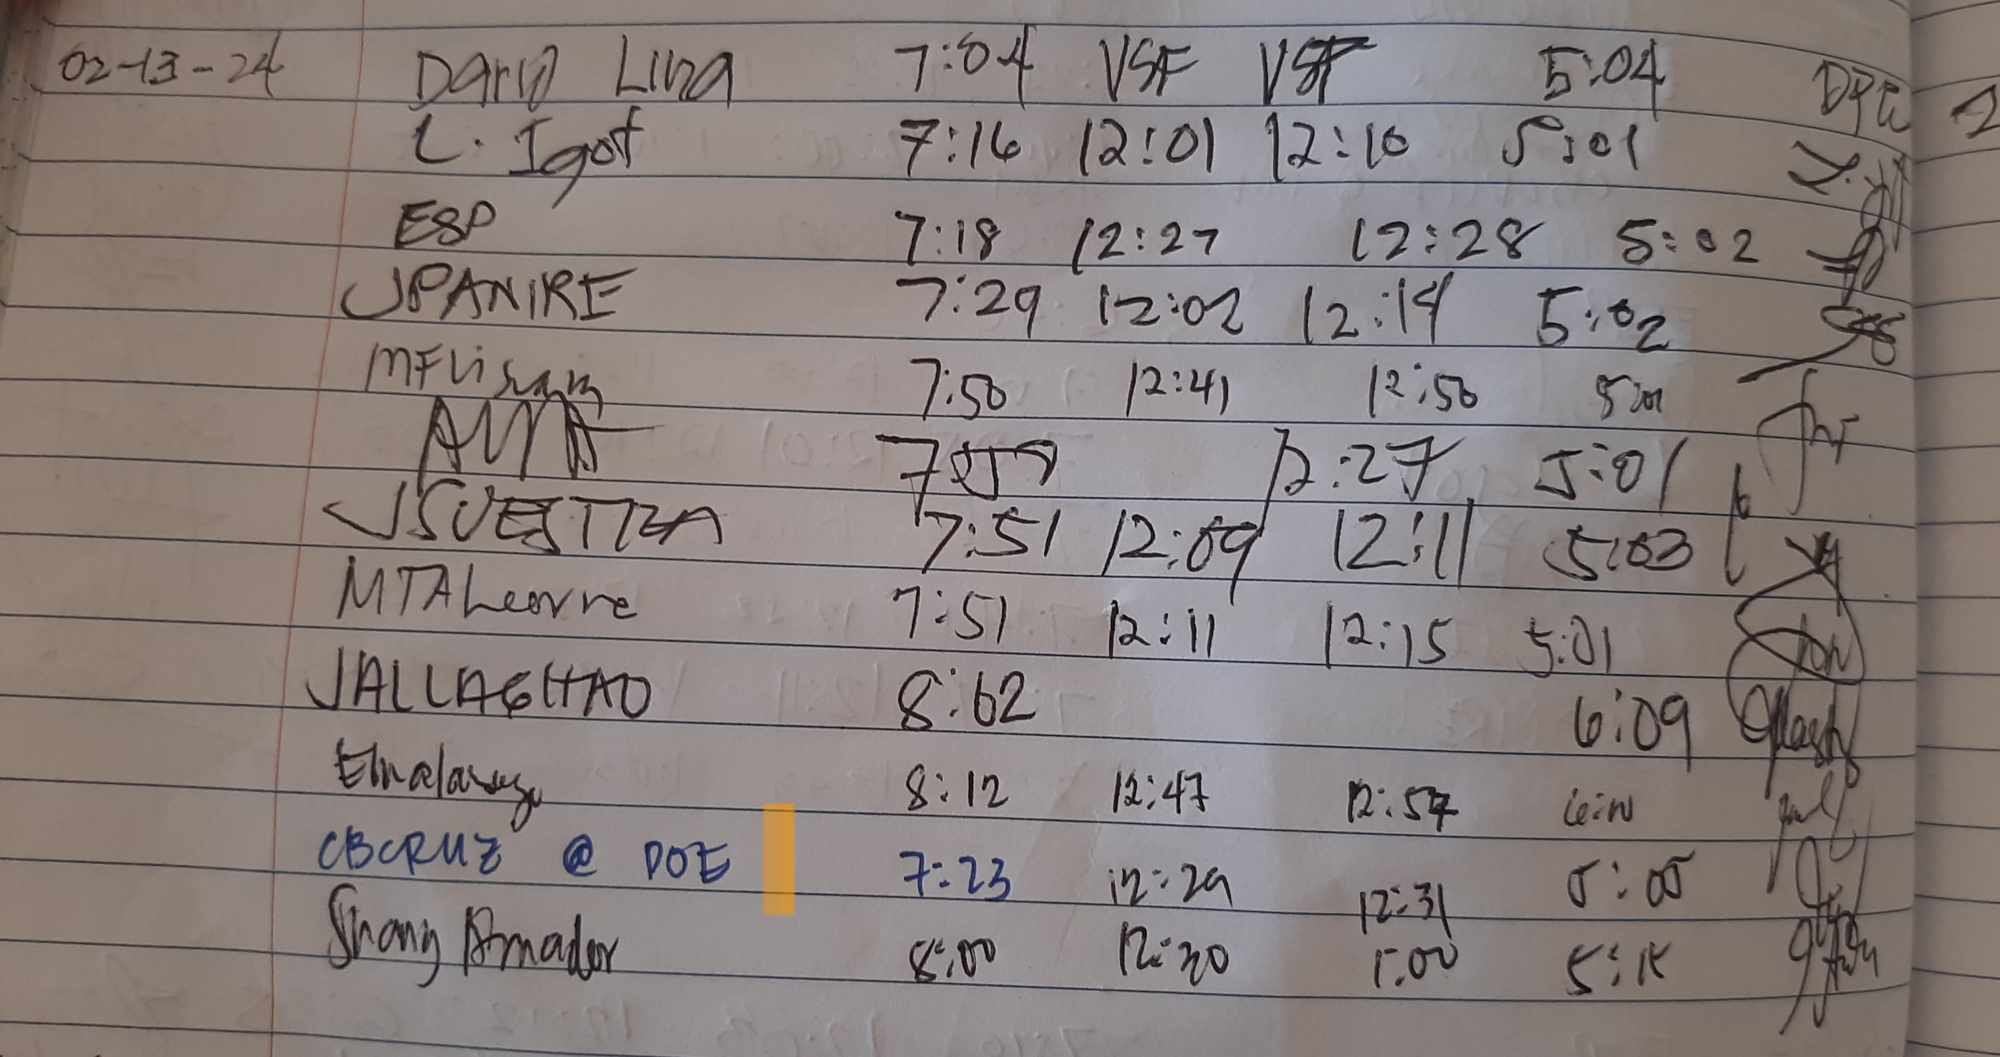 02-13-24 Dario Liza 7:04 VSF VSF 5:04
L. Igot 7:16 12:01 12:10 5:01
ESP 7:18 12:27 12:28 5:02
JPANIRE 7:29 12:02 12:14 5:02
7:50 12:41 12:50 5:01
12:27 5:01
JSUESTIZA 7:51 12:09 12:11 5:03
7:51 12:11 12:15 5:01
JALLAGHAO 8:02 6:09
8:12 12:47 12:57
CBCRUZ @ DOE 7:23 12:29 12:31 5:05
Shany Amador 8:00 12:30 1:00 5:15